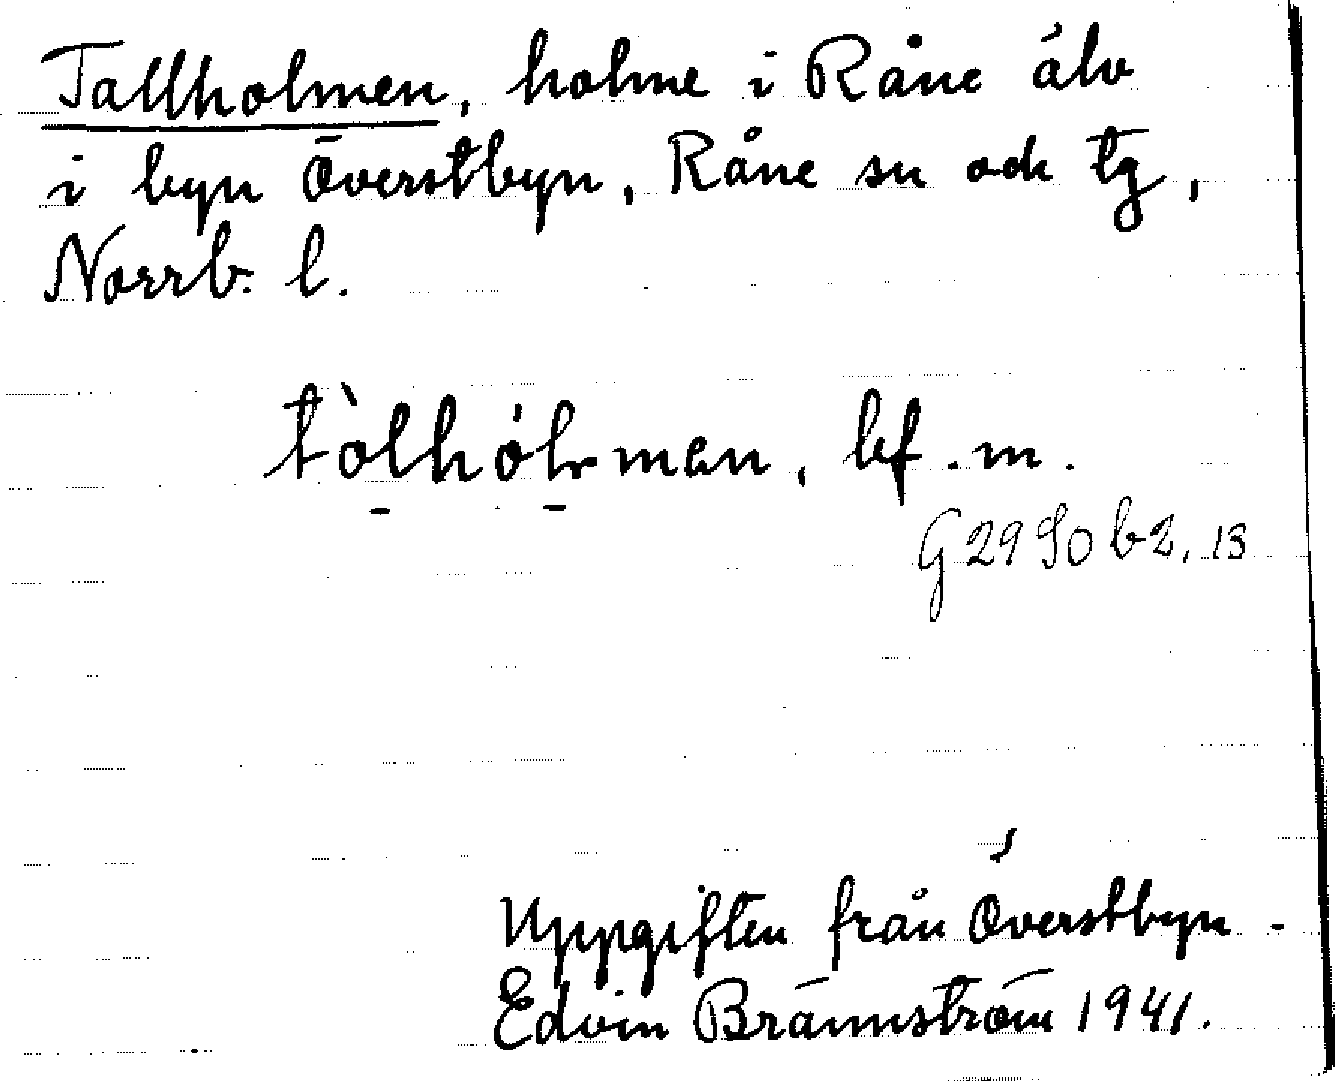 Tallholmen, holme i Råne älv
i byn Överstbyn, Råne sn och tg,
Norrb. l.
tòlhólmen, bf. m.
G 29 90 b 2, 13
Uppgiften från Överstbyn -
Edvin Brännström 1941.